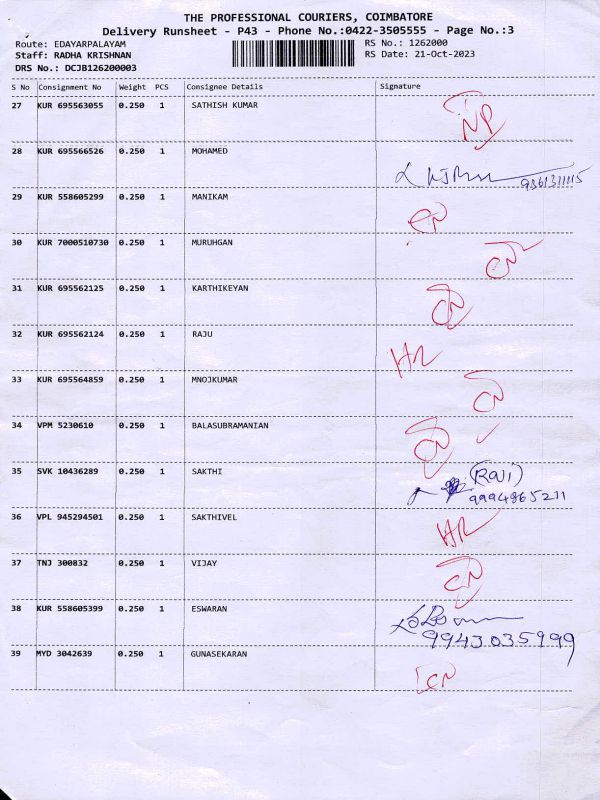 THE PROFESSIONAL COURIERS, COIMBATORE
Delivery Runsheet - P43 - Phone No.:0422-3505555 - Page No.:3
Route: EDAYARPALAYAM
RS No.: 1262000
Staff: RADHA KRISHNAN
RS Date: 21-Oct-2023
DRS No.: DCJB126200003
S No Consignment No Weight PCS Consignee Details Signature
27 KUR 695563055 0.250 1 SATHISH KUMAR NP
28 KUR 695566526 0.250 1 MOHAMED
29 KUR 558605299 0.250 1 MANIKAM CN
30 KUR 7000510730 0.250 1 MURUHGAN CN
31 KUR 695562125 0.250 1 KARTHIKEYAN CN
32 KUR 695562124 0.250 1 RAJU HR
33 KUR 695564859 0.250 1 MNOJKUMAR CN
34 VPM 5230610 0.250 1 BALASUBRAMANIAN CN
35 SVK 10436289 0.250 1 SAKTHI (Raji)
9994865211
36 VPL 945294501 0.250 1 SAKTHIVEL HR
37 TNJ 300832 0.250 1 VIJAY CN
38 KUR 558605399 0.250 1 ESWARAN
9943035999
39 MYD 3042639 0.250 1 GUNASEKARAN CN